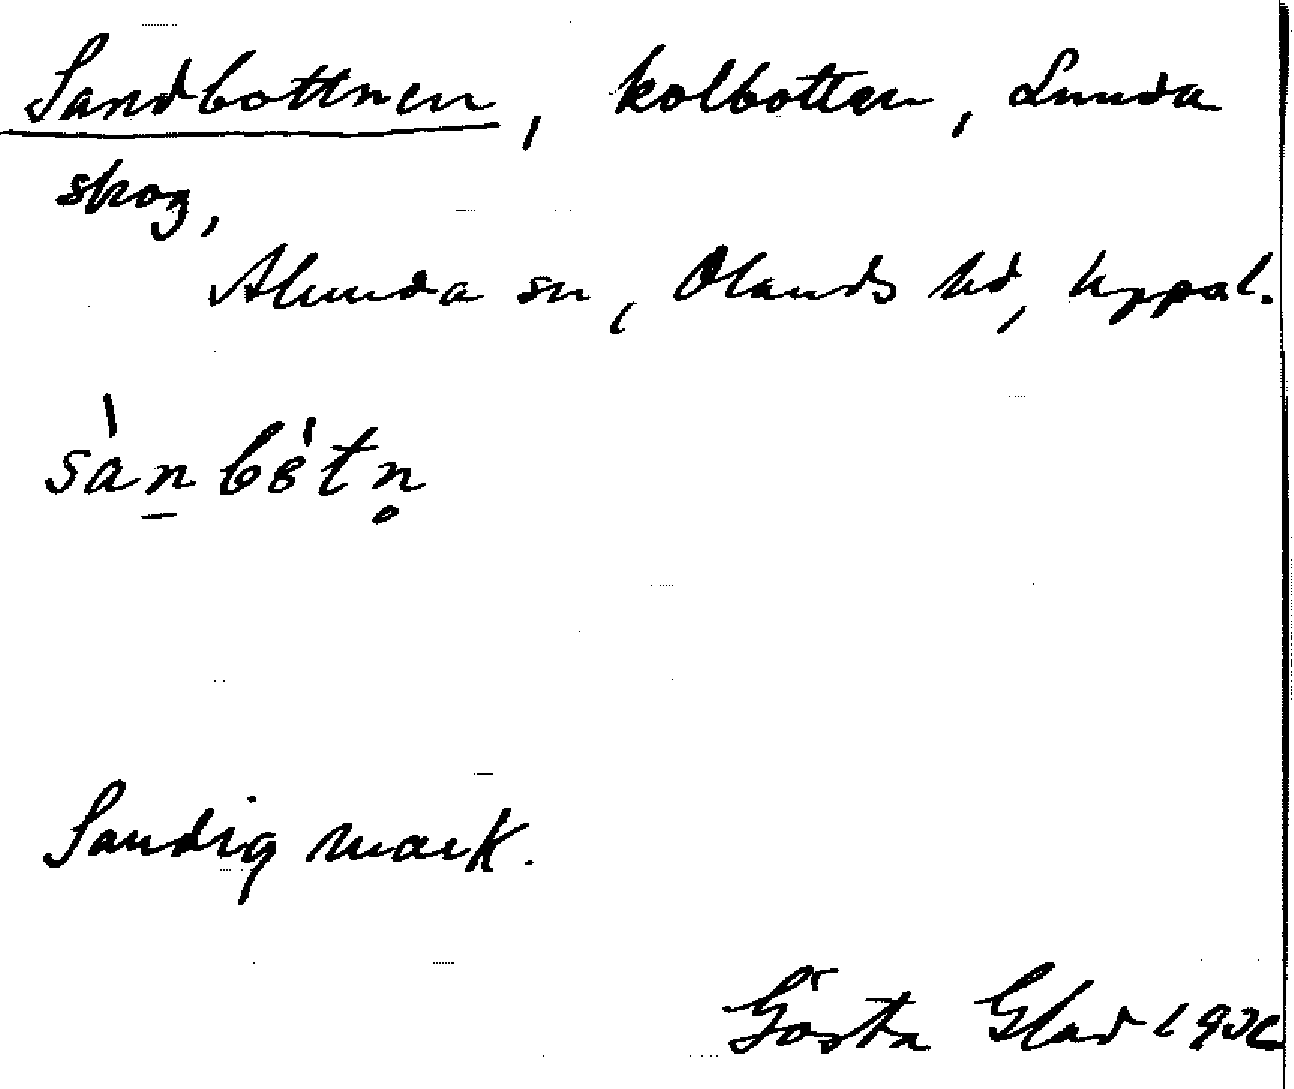 Sandbottnen, kolbotten, Lunda
skog,
Alunda sn, Olands hd, Uppsal.
Sandig mark.
Gösta Glad